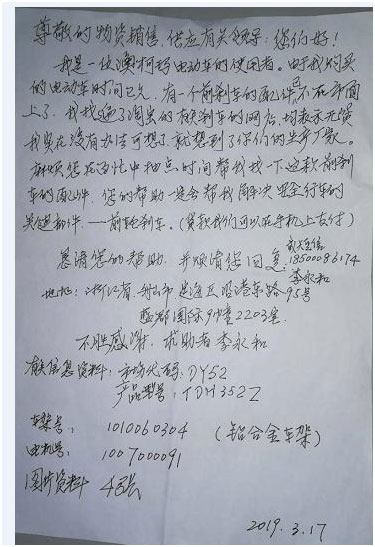 尊敬的物资销售、供应有关领导：您们好！
我是一位澳柯玛电动车的使用者。由于我购买
的电动车时间已久，有一个前刹车的配件已不在市面
上了，我找遍了淘宝的有刹车的网店，均表示无货
我实在没有办法可想了，就想到了你们的生产厂家。
麻烦您在百忙中抽点时间帮我找一下这款前刹
车的配件，您的帮助一定会帮我解决安全行车的
关键部件——前轮刹车。（货款我们可以在手机上支付）
恳请您的帮助，并烦请您回复：
18500086174
李永和
地址：浙江省舟山市定海区 港东路95号
国际9幢2203室
不胜感谢，求助者李永和
有关信息资料：市场代码：DY52
产品型号：TDH352Z
车架号：1010060304（铝合金车架）
电机号：1007000091
图片资料 4张
2019.3.17